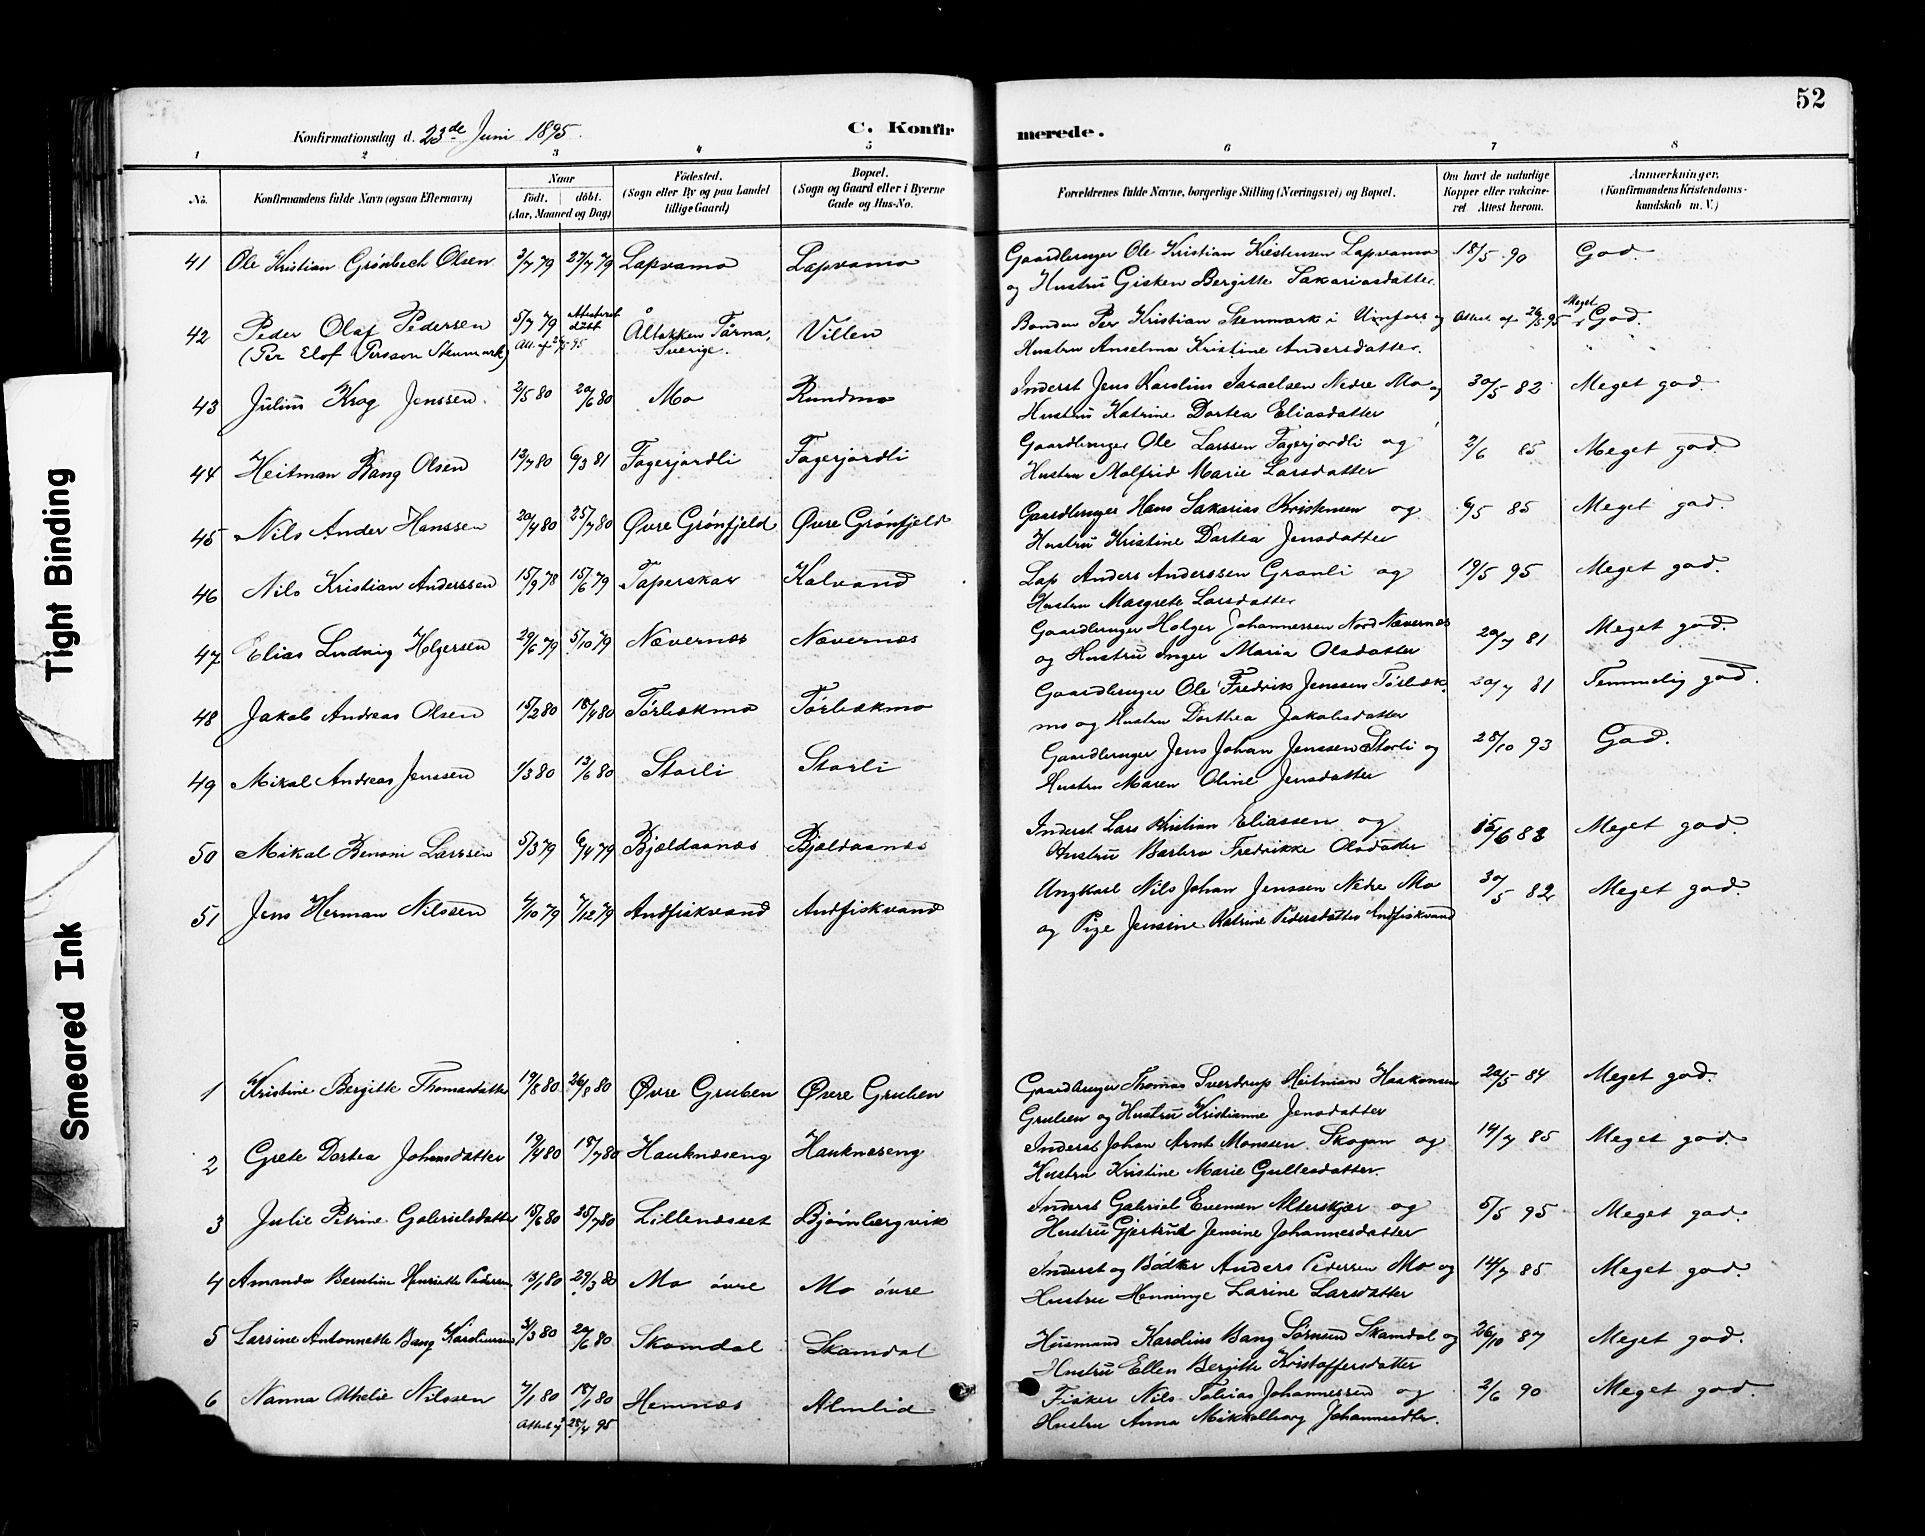 52
Konfirmationsdag d. 23de Juni 1895. C. Konfirmerede.
1 2 3 4 5 6 7 8
No. Konfirmandens fulde Navn (ogsaa Efternavn) Naar Født. døbt. (Aar, Maaned og Dag) Fødested. (Sogn eller By og paa Landet tillige Gaard) Bopæl. (Sogn og Gaard eller i Byerne Gade og Hus-No. Forældrenes fulde Navne, borgerlige Stilling (Næringsvei) og Bopæl. Om havt de naturlige Kopper eller vakcineret Attest herom. Anmærkninger. (Konfirmandens Kristendomskundskab m. V.)
41 Ole Kristian Grønbech Olsen 2/7 79 27/7 79 Lapvamo Lapvamo Gaardbruger Ole Kristian Kristensen Lapvamo 18/5 90 God.
og Hustru Gisken Bergitte Sakariasdatter.
42 Peder Olaf Pedersen 5/7 79 Attesteret døbt Å Altakken Tärna, Villen Bonden Per Kristian Stenmark i Umfors og Attest af 26/5 95 Meget God.
(Per Elof Persson Stenmark) Att. af 2/5 95 Sverige. Hustru Anselma Kristine Andersdatter.
43 Julius Krog Jenssen 2/5 80 20/6 80 Mo Rundmo Inderst Jens Karolius Israelsen Nedre Mo og 30/5 82 Meget god.
Hustru Katrine Dortea Eliasdatter
44 Heitman Bang Olsen 12/7 80 6/3 81 Fagerjordli Fagerjordli Gaardbruger Ole Larssen Fagerjordli og 2/6 85 Meget god.
Hustru Malfrid Marie Larsdatter
45 Nils Ander Hanssen 20/4 80 25/7 80 Øvre Grønfjeld Øvre Grønfjeld Gaardbruger Hans Sakarias Kristensen og 6/5 85 Meget god.
Hustru Kristine Dortea Jensdatter
46 Nils Kristian Anderssen 15/9 78 15/6 79 Taperskar Kalvand Lap Anders Anderssen Granli og 19/5 95 Meget god.
Hustru Margrete Larsdatter
47 Elias Ludvig Holgersen 29/6 79 5/10 79 Nævernæs Nævernæs Gaardbruger Holger Johannessen Nord Nævernæs 20/7 81 Meget god.
og Hustru Inger Maria Olsdatter
48 Jakob Andreas Olsen 15/2 80 18/4 80 Tørbækmo Tørbækmo Gaardbruger Ole Fredrik Jenssen Tørbæk. 20/7 81 Temmelig god.
mo og Hustru Dorthea Jakobsdatter
49 Mikal Andreas Jenssen 1/3 80 13/6 80 Storli Storli Gaardbruger Jens Johan Jenssen Storli og 28/10 93 God.
Hustru Maren Oline Jensdatter
50 Mikal Benoni Larssen 5/3 79 6/4 79 Bjældaanæs Bjældaanæs Inderst Lars Kristian Eliassen og 15/6 83 Meget god.
Hustru Barbro Fredrikke Olsdatter
51 Jens Herman Nilssen 4/10 79 7/12 79 Andfiskvand Andfiskvand Ungkarl Nils Johan Jenssen Nedre Mo 30/5 82 Meget god.
og Pige Jensine Katrine Pedersdatter Andfiskvand
1 Kristine Bergitte Thomasdatter 19/8 80 26/8 80 Øvre Gruben Øvre Gruben Gaardbruger Thomas Sverdrup Heitman Haakonsen 20/5 84 Meget god.
Gruben og Hustru Kristianne Jensdatter
2 Grete Dortea Johansdatter 19/4 80 18/7 80 Hauknæseng Hauknæseng Inderst Johan Arnt Monssen Skogan og 14/7 85 Meget god.
Hustru Kristine Marie Gullesdatter.
3 Julie Petrine Gabrielsdatter 15/6 80 25/7 80 Lillenæsset Bjørnbærgvik Inderst Gabriel Evensen Alterskjær og 5/5 95 Meget god.
Hustru Gjertrud Jensine Johannesdatter
4 Amanda Berntine Henriette Pedersen 13/1 80 29/3 80 Mo øvre Mo øvre Inderst og Bødker Anders Pedersen Mo og 14/7 85 Meget god.
Hustru Henninge Larine Larsdatter
5 Larsine Antonnette Bang Karoliussen 31/3 80 20/6 80 Skamdal Skamdal Husmand Karolius Bang Sørensen Skamdal og 26/10 87 Meget god.
Hustru Ellen Bergitte Kristoffersdatter
6 Nanna Athelie Nilssen 7/1 80 18/1 80 Hemnæs Almlid Fisker Nils Tobias Johannessen og 2/6 90 Meget god.
Attest af 28/4 95 Hustru Anna Mikkelborg Johannesdtr.
Tight Binding
Smeared Ink